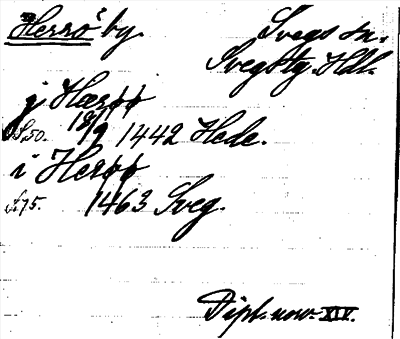 Herrö by
Svegs sn.
Svegs tg. Hdl.
j Hærøø
S.50. 12/9 1442 Hede.
i Herøø
S.75. 1463 Sveg.
Dipl. norv. XIV.